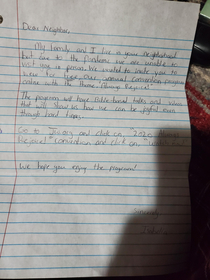 Dear Neighbor,
My family and I live in your neighborhood
but due to the Pandemic we are unable to
visit you in person. We wanted to invite you to
view this year our annual Convention program
online with the theme "Always Rejoice!"
The program will have Bible-based talks and videos
that will show us how we can be joyful even
though hard times.
Go to jw.org and click on "2020 Always
Rejoice!" Convention and click on,
We hope you enjoy the program!